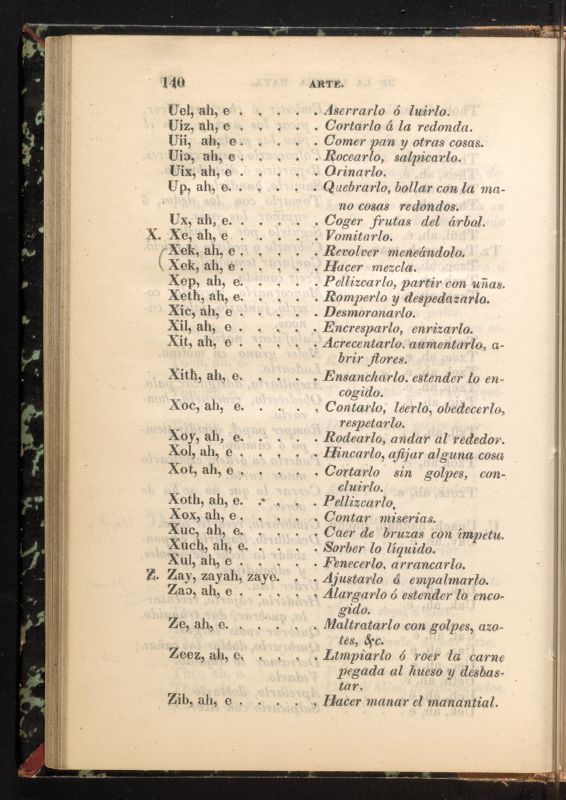 140 ARTE.
Uel, ah, e . . . . . Aserrarlo ó luirlo.
Uiz, ah, e . . . . . Cortarlo á la redonda.
Uii, ah, e . . . . . Comer pan y otras cosas.
Uiɔ, ah, e . . . . . Rocearlo, salpicarlo.
Uix, ah, e . . . . . Orinarlo.
Up, ah, e. . . . . . Quebrarlo, bollar con la ma-
no cosas redondos.
Ux, ah, e. . . . . . Coger frutas del árbol.
X. Xe, ah, e . . . . . Vomitarlo.
Xek, ah, e . . . . . Revolver meneándolo.
(Xek, ah, e . . . . . Hacer mezcla.
Xep, ah, e. . . . . Pellizcarlo, partir con uñas.
Xeth, ah, e. . . . . Romperlo y despedazarlo.
Xic, ah, e . . . . . Desmoronarlo.
Xil, ah, e . . . . . Encresparlo, enrizarlo.
Xit, ah, e . . . . . Acrecentarlo. aumentarlo, a-
brir flores.
Xith, ah, e. . . . . Ensancharlo. estender lo en-
cogido.
Xoc, ah, e. . . . . Contarlo, leerlo, obedecerlo,
respetarlo.
Xoy, ah, e. . . . . Rodearlo, andar al rededor.
Xol, ah, e . . . . . Hincarlo, afijar alguna cosa
Xot, ah, e . . . . . Cortarlo sin golpes, con-
cluirlo.
Xoth, ah, e. . . . . Pellizcarlo.
Xox, ah, e . . . . . Contar miserias.
Xuc, ah, e. . . . . Caer de bruzas con ímpetu.
Xuch, ah, e. . . . . Sorber lo líquido.
Xul, ah, e . . . . . Fenecerlo. arrancarlo.
Z. Zay, zayah, zaye. . . Ajustarlo á empalmarlo.
Zaɔ, ah, e . . . . . Alargarlo ó estender lo enco-
gido.
Ze, ah, e. . . . . . Maltratarlo con golpes, azo-
tes, &c.
Zeez, ah, e. . . . . Ltmpiarlo ó roer la carne
pegada al hueso y desbas-
tar.
Zib, ah, e . . . . . Hacer manar el manantial.